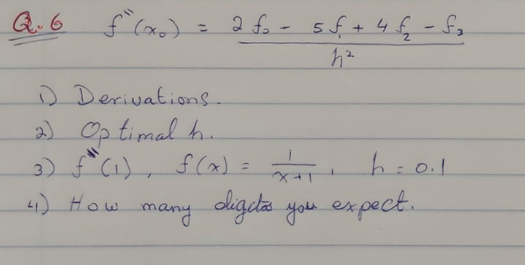 Q.6 f''(x₀) = 2f₀ - 5f₁ + 4f₂ - f₃
h²
1) Derivations.
2) Optimal h.
3) f''(1), f(x) = 1/(x+1), h = 0.1
4) How many digits you expect.